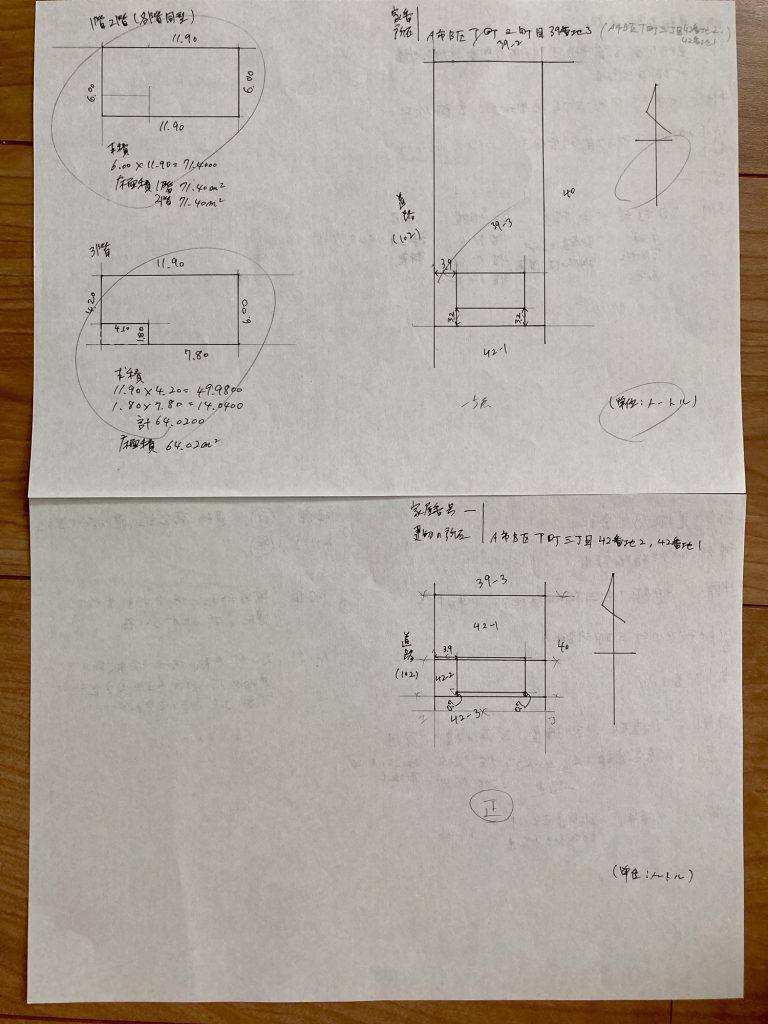 1階2階(各階同型)
11.90
6.00
6.00
11.90
求積
6.00×11.90=71.4000
床面積 1階 71.40m²
2階 71.40m²
3階
11.90
4.20
6.00
4.10
1.80
7.80
求積
11.90×4.20=49.9800
1.80×7.80=14.0400
計64.0200
床面積 64.02m²
家番
所在
A市B区丁町二町目39番地3 (A市B区丁町三丁目42番地2.
42番地1
39-2
道路
(102)
40
39-3
3.9
3.2
3.2
42-1
(単位:メートル)
家屋番号
建物の所在
A市B区丁町三丁目42番地2, 42番地1
39-3
42-1
道路
(102)
40
3.9
42-2
0.7
0.7
42-3
正
(単位:メートル)